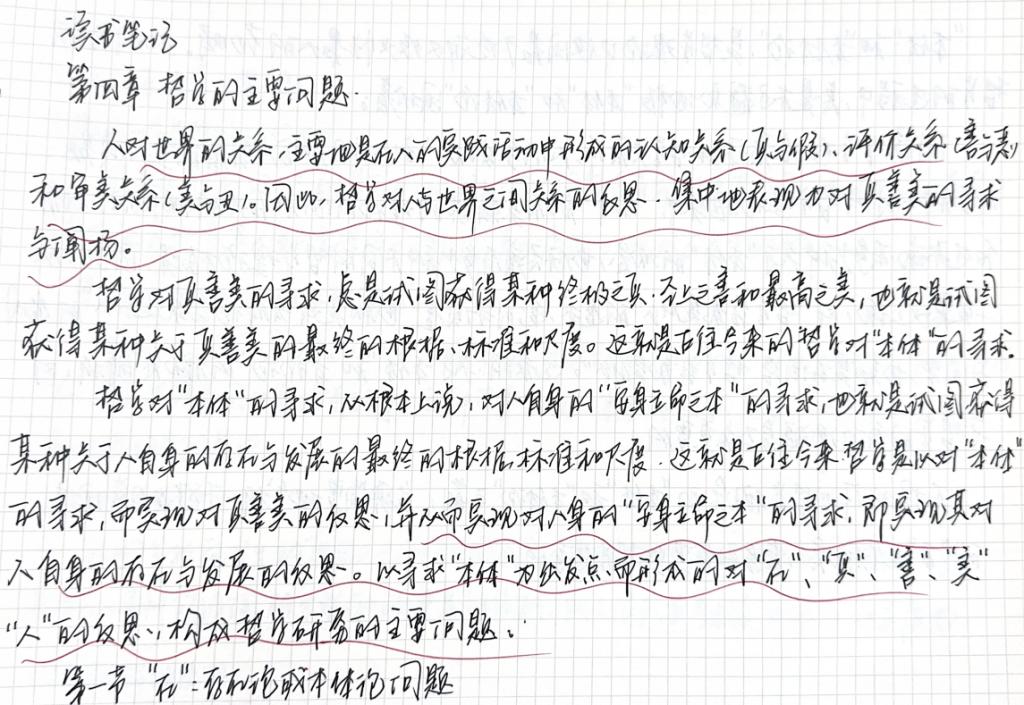 读书笔记
第四章 哲学的主要问题.
人对世界的关系,主要地是在人的实践活动中形成的认知关系(真与假)、评价关系(善与恶)
和审美关系(美与丑)。因此,哲学对人与世界之间关系的反思,集中地表现为对真善美的寻求
与阐扬。
哲学对真善美的寻求,总是试图获得某种终极之真、至上之善和最高之美,也就是试图
获得某种关于真善美的最终的根据、标准和尺度。这就是古往今来的哲学对"本体"的寻求.
哲学对"本体"的寻求,从根本上说,对人自身的"安身立命之本"的寻求,也就是试图获得
某种关于人自身的存在与发展的最终的根据、标准和尺度.这就是古往今来哲学是以对"本体"
的寻求,而实现对真善美的反思,并从而实现对人身的"安身立命之本"的寻求,即实现其对
人自身的存在与发展的反思。以寻求"本体"为出发点而形成的对"在"、"真"、"善"、"美"
"人"的反思,构成哲学研究的主要问题.
第一节 "在":存在论或本体论问题